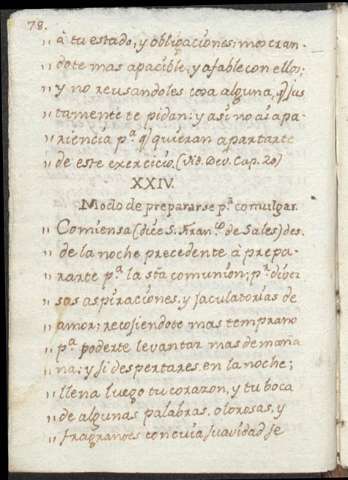 78.
„ à tu estado, y obligaciones: mostran-
„ dote mas apacible, y afable con ellos;
„ y no recusandoles cosa alguna, q̃ jus
„ tamente te pidan: y asi no ai apa-
„ riencia p.ª q̃ quieran apartarte
„ de este exercicio. (Yd. Dev. Cap. 20)
XXIV.
Modo de prepararse p.ª comulgar.
Comiensa (dice S. Fran.co de Sales) des-
„ de la noche precedente à prepa-
„ rarte p.ª la stã comunión; p.r diver
„ sas aspiraciones, y jaculatorias de
„ amor: recojiendote mas temprano
„ p.ª poderte levantar mas de maña
„ na: y si despertares en la noche;
„ llena luego tu corazon, y tu boca
„ de algunas palabras, olorosas, y
„ fragrantes con cuia suavidad se